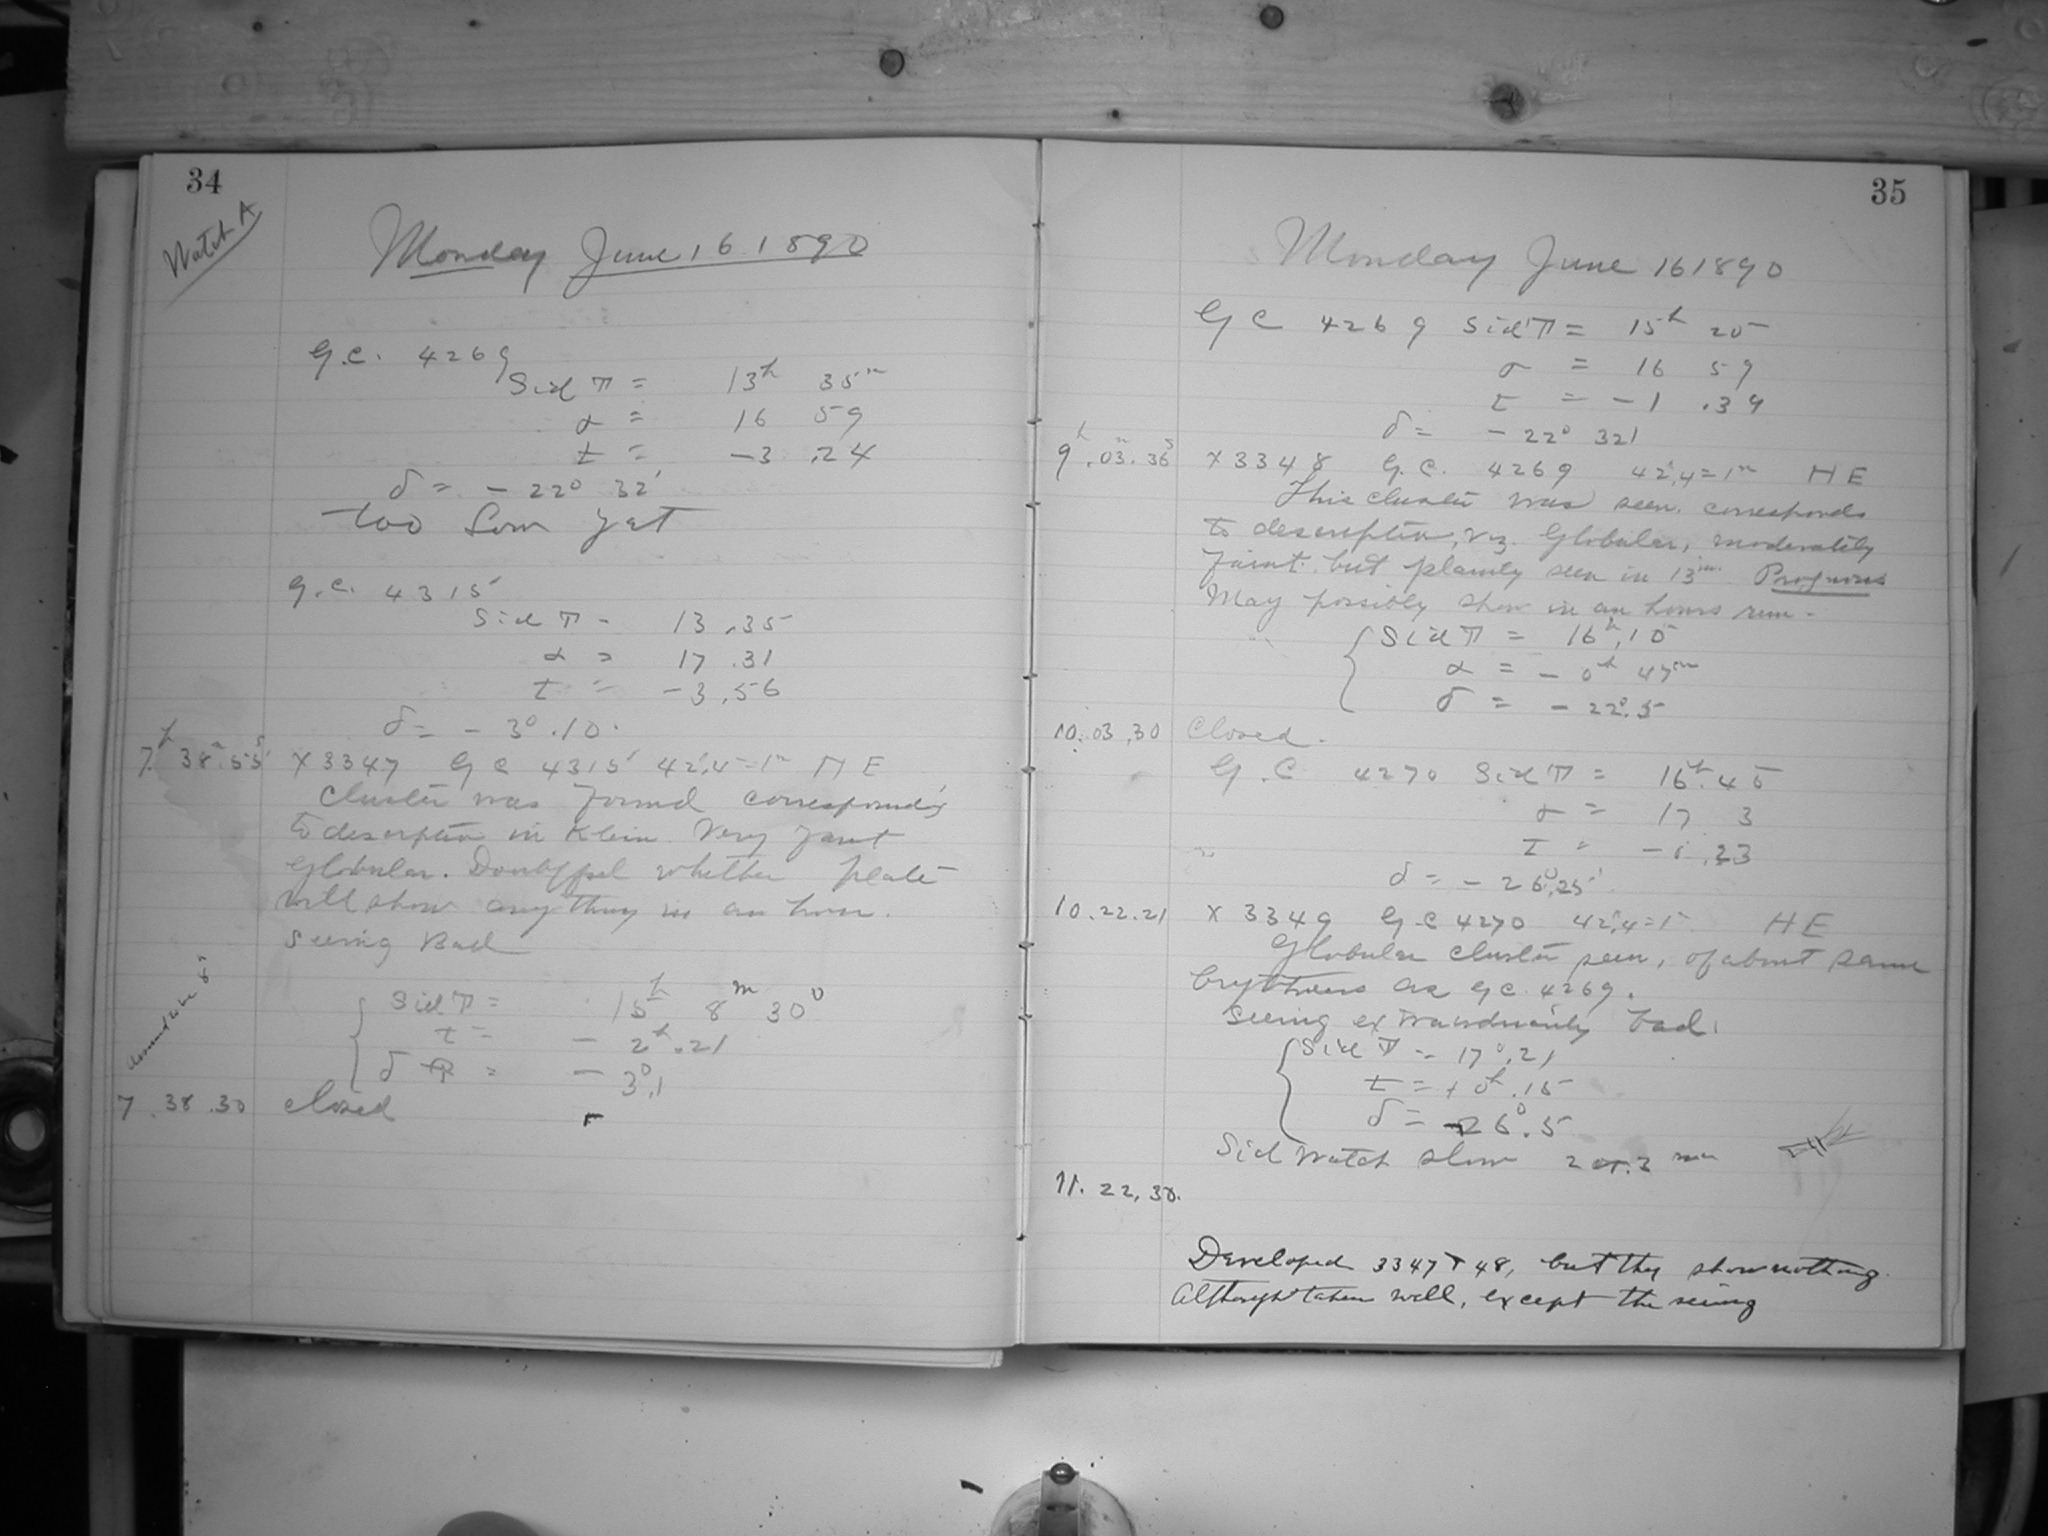 34
Watch A
Monday June 16 1890
G.C. 4269
Sid T = 13h 35m
α = 16 59
t = -3 .24
δ = -22° 32'
too low yet
G.C. 4315
Sid T = 13 .35
α = 17 .31
t = -3.56
δ = -3° .10.
7h 38m.55s X3347 G C 4315 42',4=1m HE
Cluster was found corresponding
to description in Klein Very faint
Globular. Doubtful whether plate
will show anything in an hour.
Seeing Bad
Sid T = 15h 8m 30
t = - 2h.21
δ = - 3°.1
7 .38 .30 closed
35
Monday June 16 1890
G C 4269 Sid T = 15h 25
α = 16 59
t = -1 .34
δ = -22° 32'
9h.03m.36s X3348 G.C. 4269 42',4=1m HE
This cluster was seen. corresponds
to description, viz. Globular, moderately
faint. but plainly seen in 13in. Prognosis
May possibly show in an hours run.
Sid T = 16h.10
α = - 0h 47m
δ = - 22°.5
10.03.30 Closed.
G.C 4270 Sid T = 16h.45
α = 17 3
t = -0.23
δ = -26°.25'
10.22.21 X3349 G C 4270 42',4=1m HE
Globular cluster seen, of about same
brightness as G C 4269.
Seeing extraordinarily bad.
Sid T = 17°.21
t = + 0h.15
δ = -26°.5
Sid watch slow 2 or 3 min
11. 22, 30.
Developed 3347 + 48, but they show nothing.
Although taken well, except the seeing